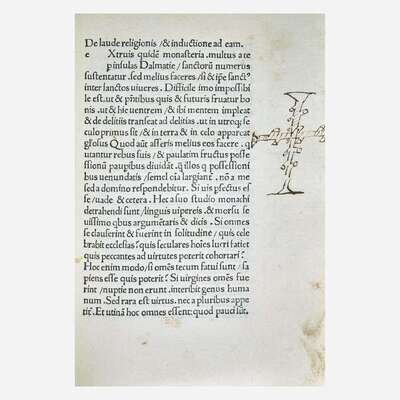 De laude religionis /& inductione ad eam.
e Xtruis quidē monasteria. multus a te
pinsulas Dalmatie/ sanctorū numerus
sustentatur. sed melius faceres/ si & ipe sanct⁹
inter sanctos uiueres. Difficile imo impossibi
le est. ut & pñtibus quis & futuris fruatur bo
nis. ut & hic uentrem/ & ibi mentem impleat
& de delitiis transeat ad delitias. ut in utroq; se
culo primus sit/ & in terra & in celo appareat
gl'osus Quod aūt asseris melius eos facere. q
utantur rebus suis/ & paulatim fructus posse
ssionū paupibus diuidāt. q̄ illos q possessioni
bus uenundatis/ semel oīa largiant'. nō a me
sed a domino respondebitur. Si uis pfectus es
se/ uade & cetera. Hec a suo studio monachi
detrahendi sunt/ linguis uipereis. & morsu se
uissimo qbus argumētaris & dicis. Si omnes
se clauserint & fuerint in solitudine/ quis cele
brabit ecclesias? quis seculares hoīes lucri faciet
quis peccantes ad uirtutes poterit cohortari?
Hoc enim modo/ si omēs tecum fatui sunt/ sa
piens esse quis poterit? Si uirgines omēs fue
rint/ nuptie non erunt. interibit genus huma
num. Sed rara est uirtus. nec a pluribus appe
tit'. Et utinā hoc omnes essent: quod pauci sūt.